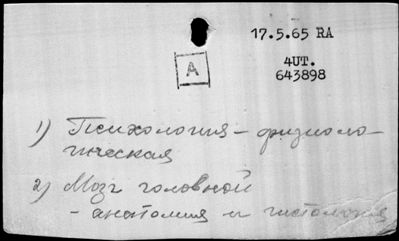 17.5.65 RA
4UT.
643898
A
1) Психология - физиоло-
гическая
2) Мозг головной
- анатомия и гистология